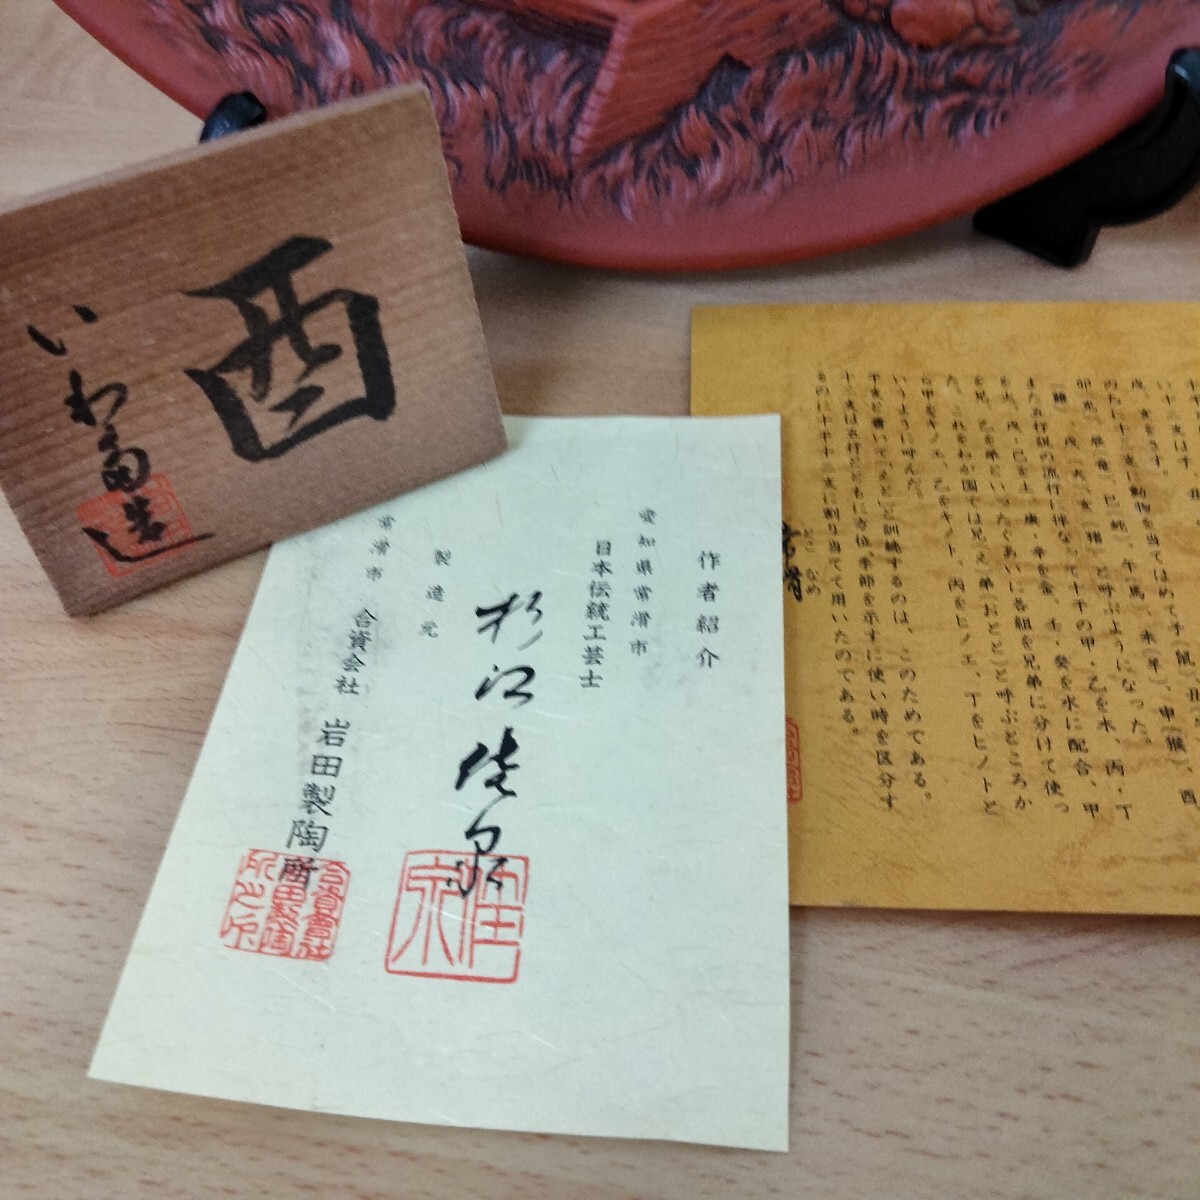 酉
いわ富造
作者紹介
愛知県常滑市
日本伝統工芸士
杉江佳泉
製造元
常滑市 合資会社 岩田製陶所
佳泉
合資會社岩田製陶所之印
い十二支は子、丑
戌、亥をさす。
のちに十二支に動物を当てはめて子(鼠)、丑
卯(兎)、辰(竜)、巳(蛇)、午(馬)、未(羊)、申(猴)、酉
(鶏)、戌(犬)、亥(猪)と呼ぶようになった。
また五行説の流行に伴なって十干の甲・乙を木、丙・丁
を火、戊・己を土、庚・辛を金、壬・癸を水に配合、甲
を兄、乙を弟といったぐあいに各組を兄弟に分けて使っ
た。これをわが国では兄(え)弟(おとと)と呼ぶところか
ら甲をキノエ、乙をキノト、丙をヒノエ、丁をヒノトと
いうように呼んだ。
干支と書いて「えと」と訓読するのは、このためである。
十二支は五行とともに方位、季節を示すに使い時を区分す
るのに十干十二支に割り当てて用いたのである。
とこなめ
常滑